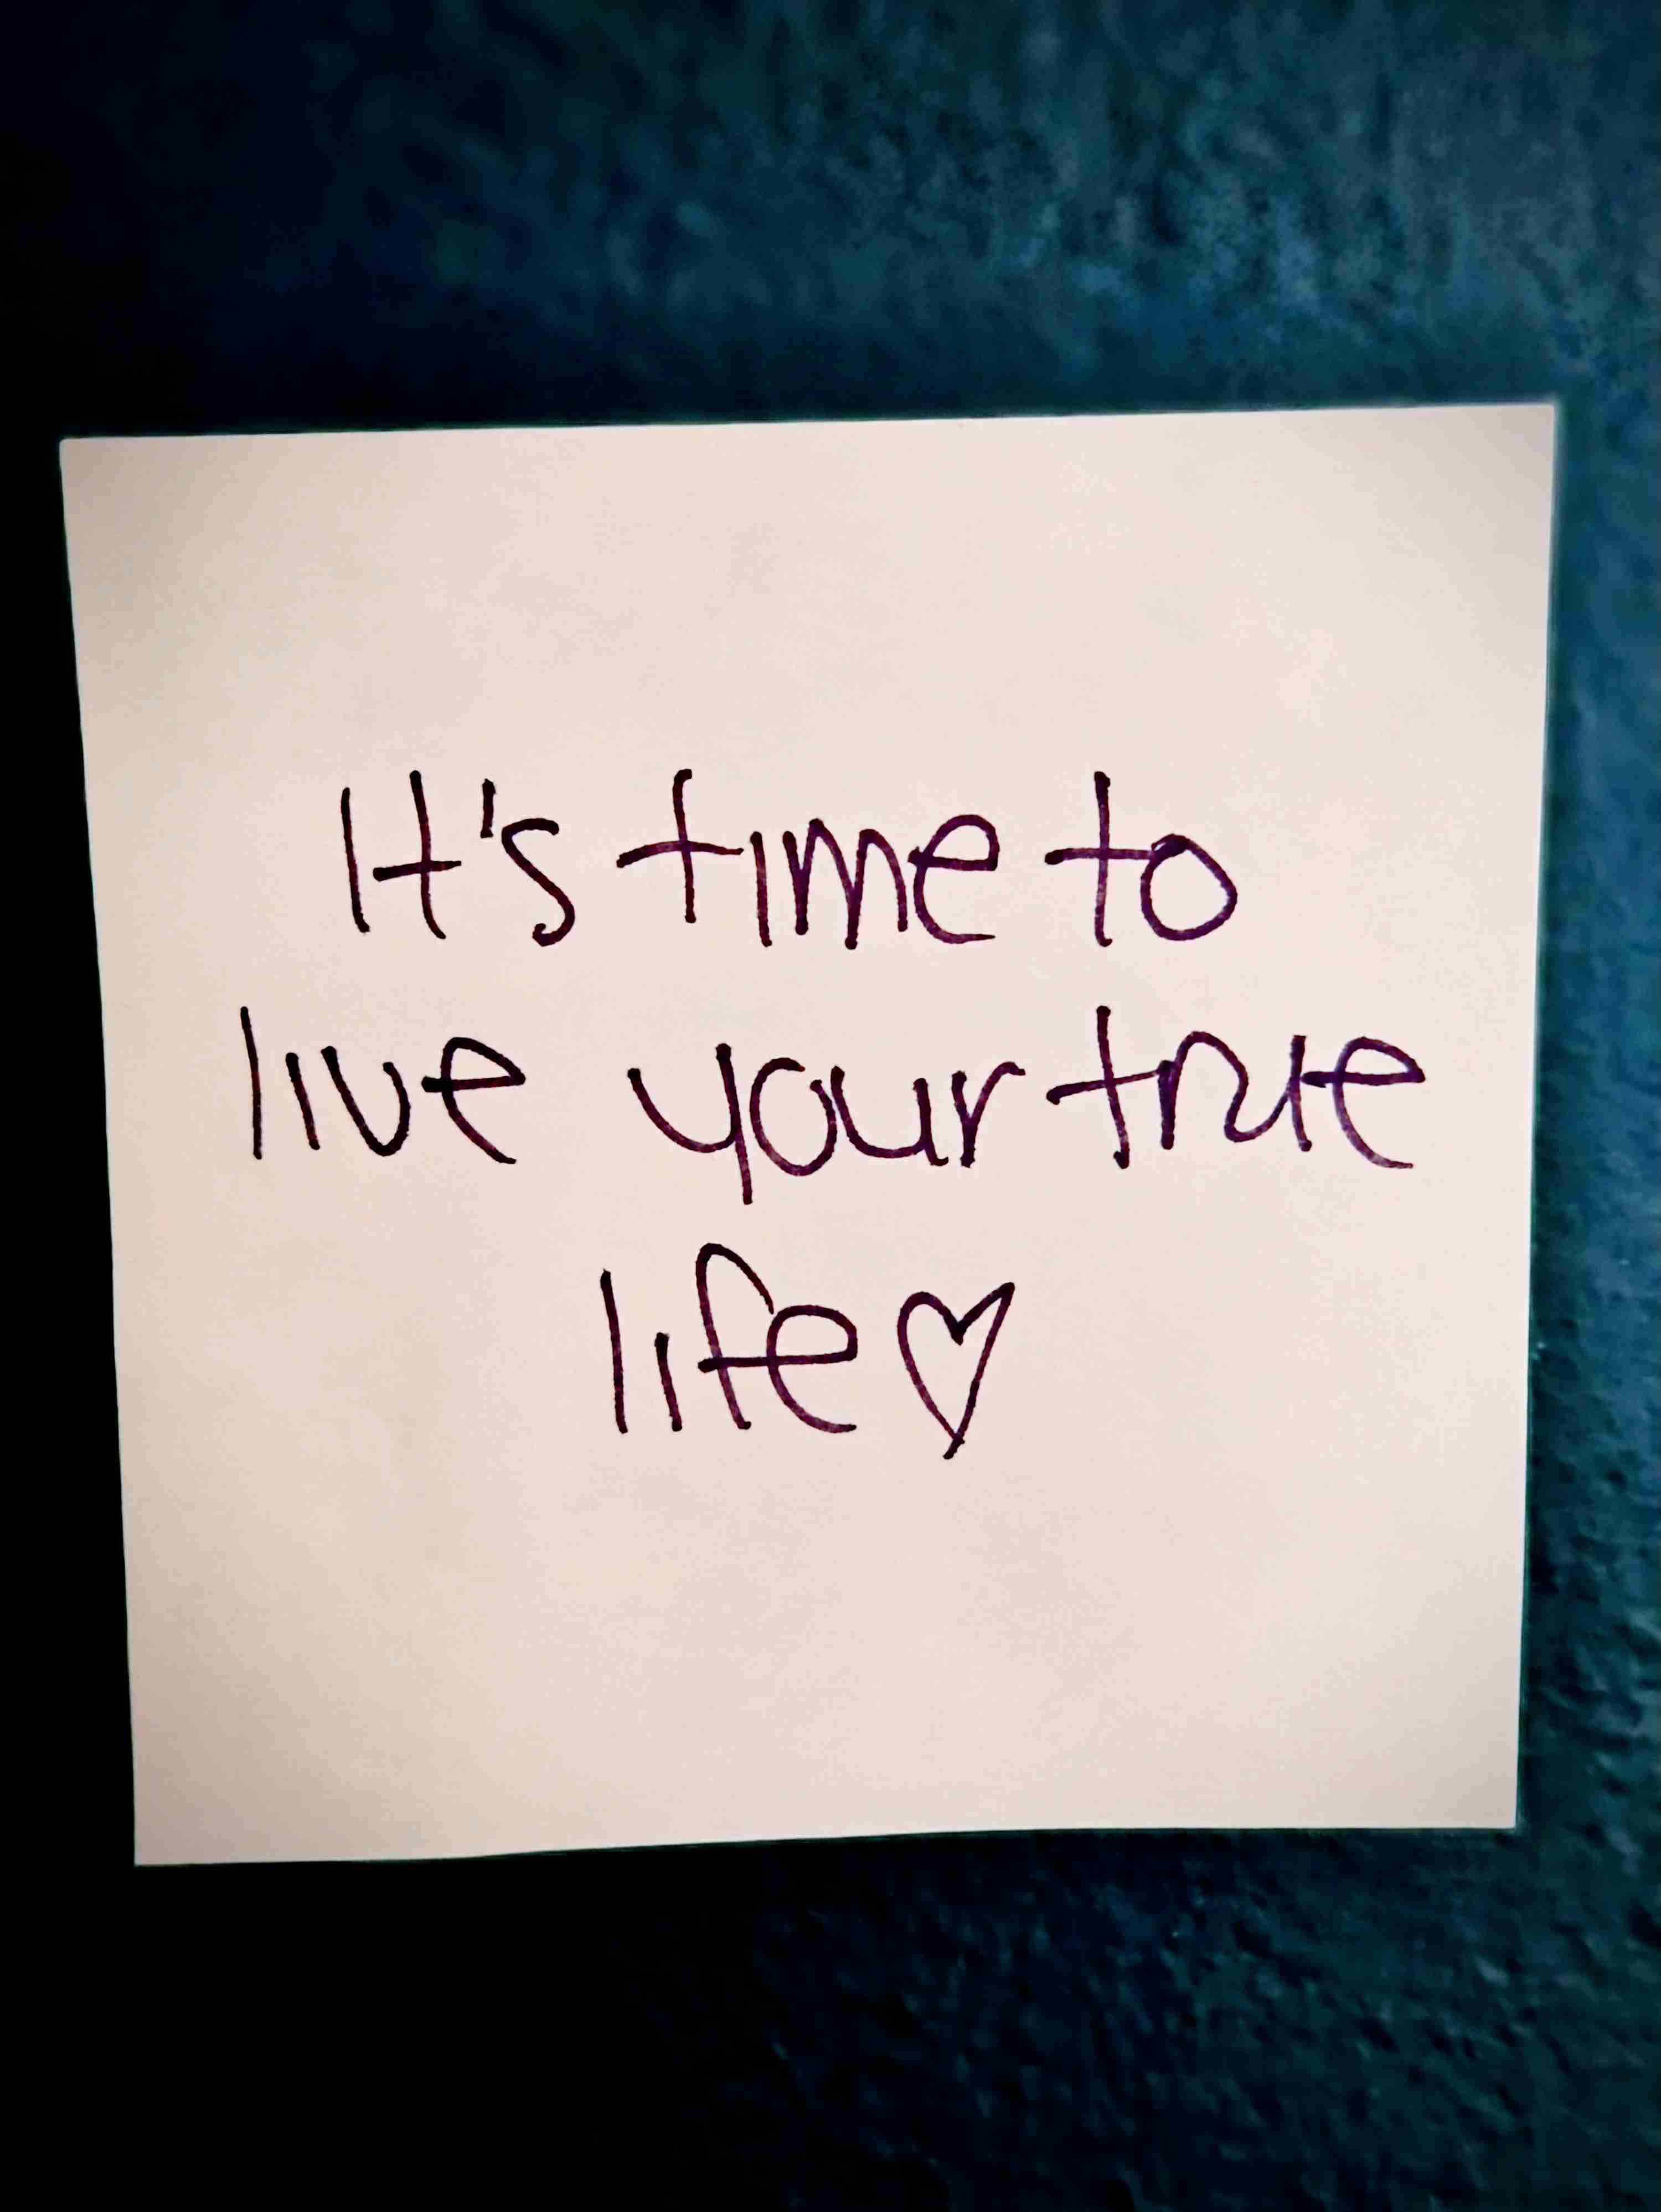 It's time to
live your true
life♡